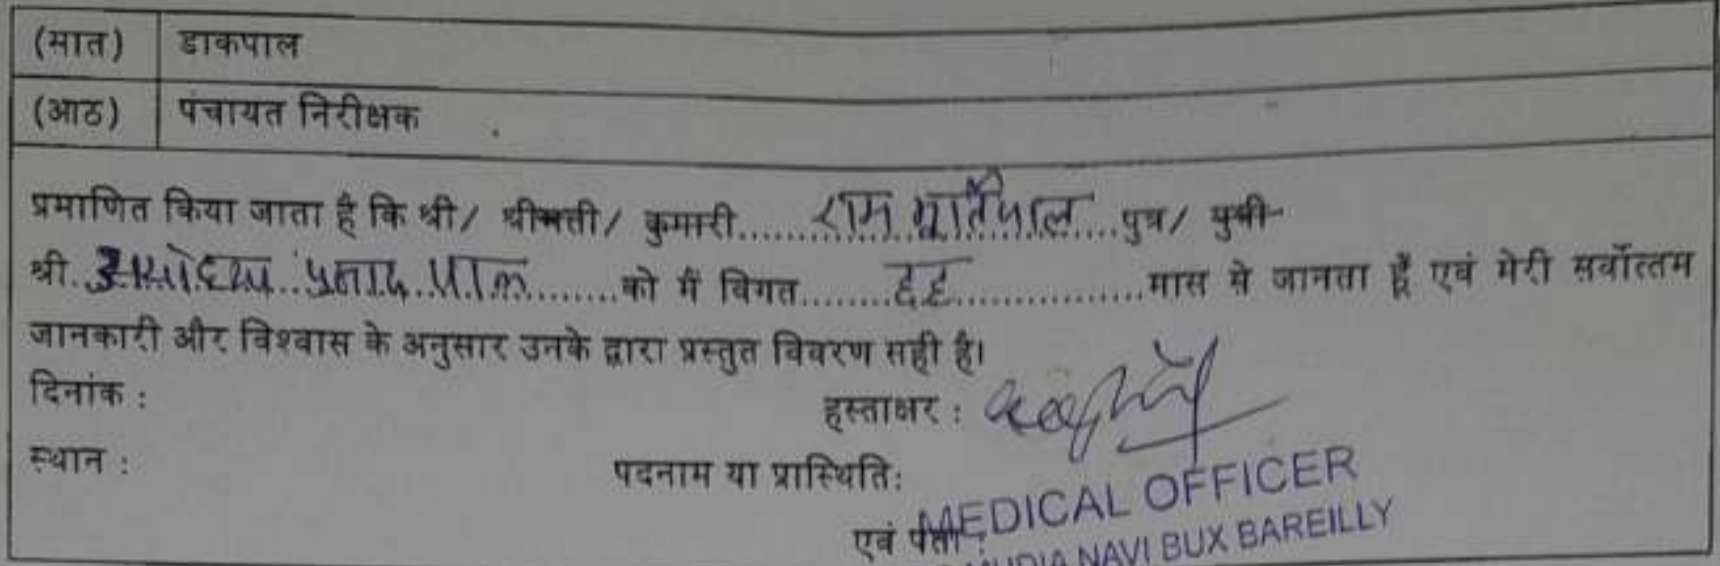 (सात) डाकपाल
(आठ) पंचायत निरीक्षक
प्रमाणित किया जाता है कि श्री/ श्रीमती/ कुमारी.....राम मूर्ति पाल...पुत्र/ पुत्री
श्री..अयोध्या प्रसाद पाल........को मैं विगत........छह................मास से जानता हूँ एवं मेरी सर्वोत्तम
जानकारी और विश्वास के अनुसार उनके द्वारा प्रस्तुत विवरण सही है।
दिनांक :
हस्ताक्षर :
स्थान :
पदनाम या प्रास्थिति:
MEDICAL OFFICER
एवं पता :
NAVI BUX BAREILLY